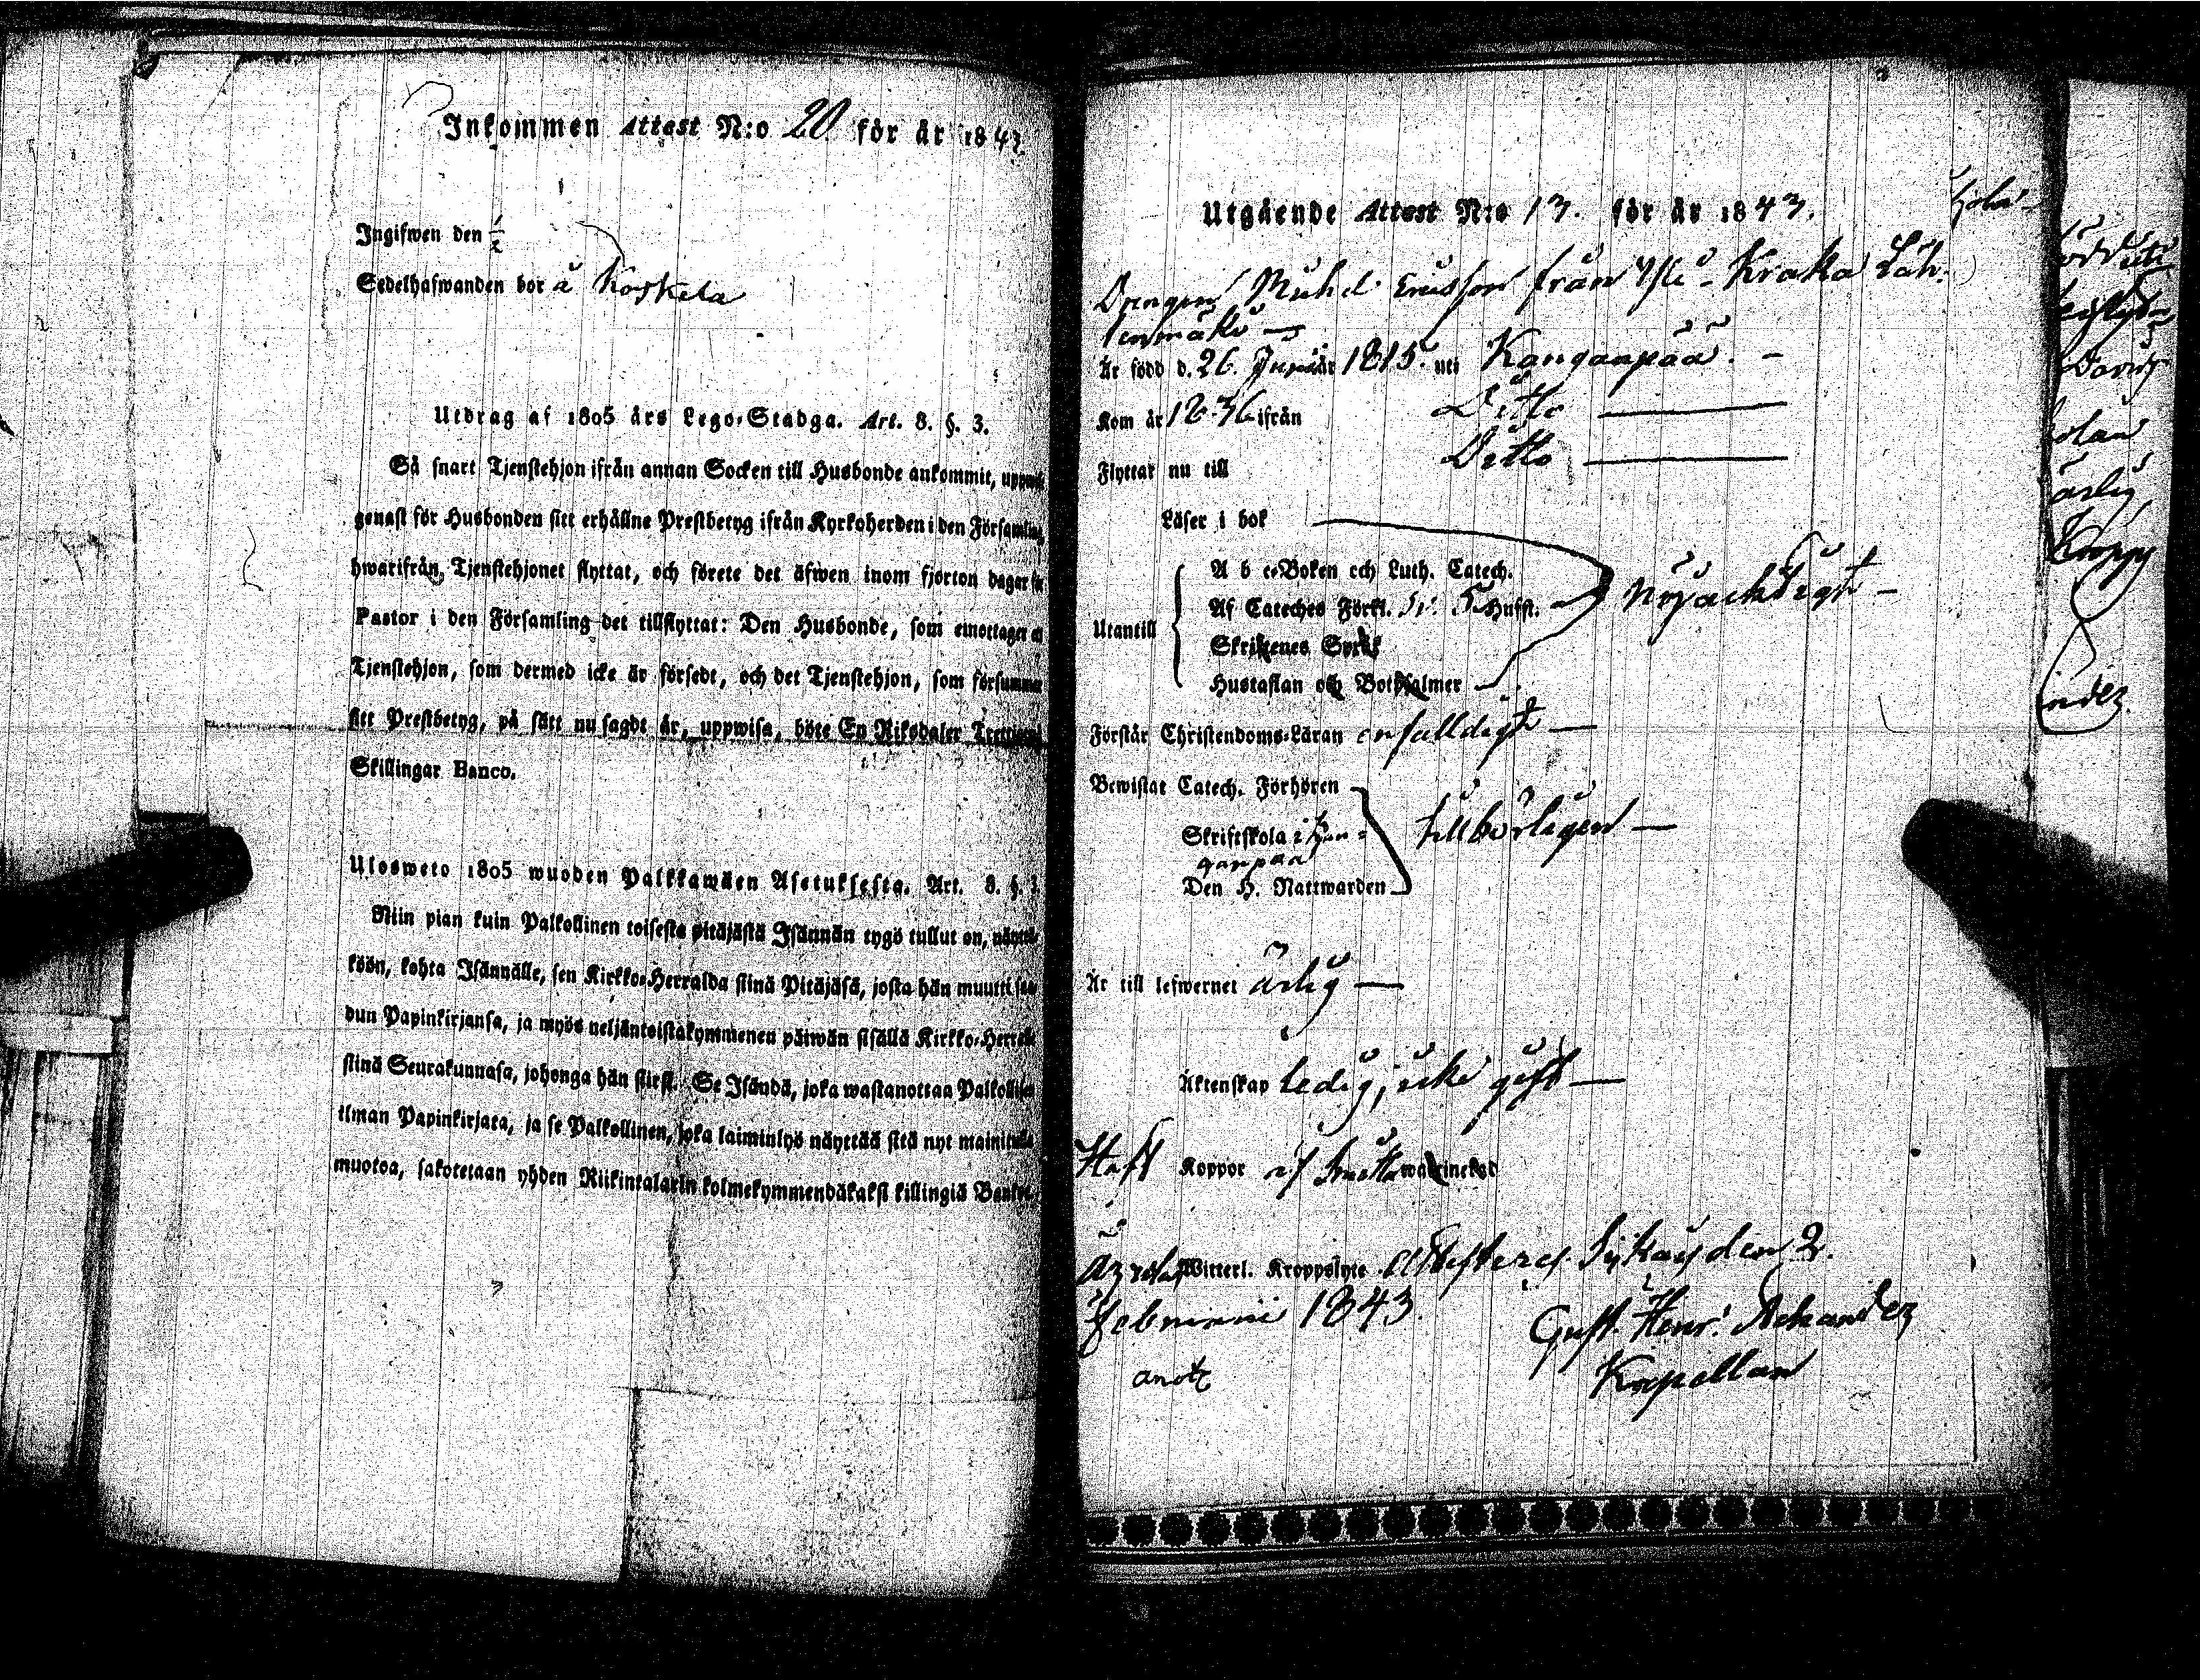 Inkommen Attest N:o 20 för år 1843
Ingifwen den 1/2
Sedelhafwanden bor å Koskela
Utdrag af 1805 års Lego-Stadga. Art. 8. §. 3.
Så snart Tjenstehjon ifrån annan Socken till Husbonde ankommit,
genast för Husbonden sitt erhållne Prestbetyg ifrån Kyrkoherden i den Församling
hwarifrån Tjenstehjonet flyttat, och förete det äfwen inom fjorton dagar
Pastor i den Församling det tillflyttat: Den Husbonde, som emottager
Tjenstehjon, som dermed icke är försedt, och det Tjenstehjon, som försummar
sitt Prestbetyg, på sätt nu sagdt är, uppwisa, böte En Riksdaler
Skillingar Banco.
Ulosweto 1805 wuoden Palkkawäen Asetuksesta. Art. 8. §. 3.
Niin pian kuin Palkollinen toisesta pitäjästä Isännän tygö tullut on,
köön, kohta Isännälle, sen Kirkko-Herralda siinä Pitäjäsä, josta hän muutti
dun Papinkirjansa, ja myös neljäntoistakymmenen päiwän sisällä Kirkko-Herralle
siinä Seurakunnasa, johonga hän siirsi. Se Isändä, joka wastanottaa Palkollisen
ilman Papinkirjata, ja se Palkollinen, joka laiminlyö näyttää sitä nyt mainitulla
muotoa, sakotetaan yhden Riikintalarin kolmekymmendäkaksi killingiä Banko
Utgående Attest N:o 13. för år 1843.
Drengen Michel Ericsson från Yli-Kraka Läh-
tenmäki —
Är född d. 26. Junii år 1815. uti Kangaanpää. -
Kom år 1836 ifrån Ditto —
Flyttar nu till Ditto —
Läser i bok
Utantill
A b c-Boken och Luth. Catech.
Af Cateches Förkl. Sv. 5 Hufst. nöjacktigt -
Skriftenes Språk
Hustaflan och Botpsalmer
Förstår Christendoms-Läran enfalldigt —
Bewistat Catech. Förhören
Skriftskola i Kan- tillbörligen —
ganpää
Den H. Nattwarden
Är till lefwernet ärlig —
Äktenskap ledig, icke gift —
Haft Koppor
Witterl. Kroppslyte Attesteras Sikais den 2.
Februarii 1843.
Gust. Henr. Achander
Kapellan
anot